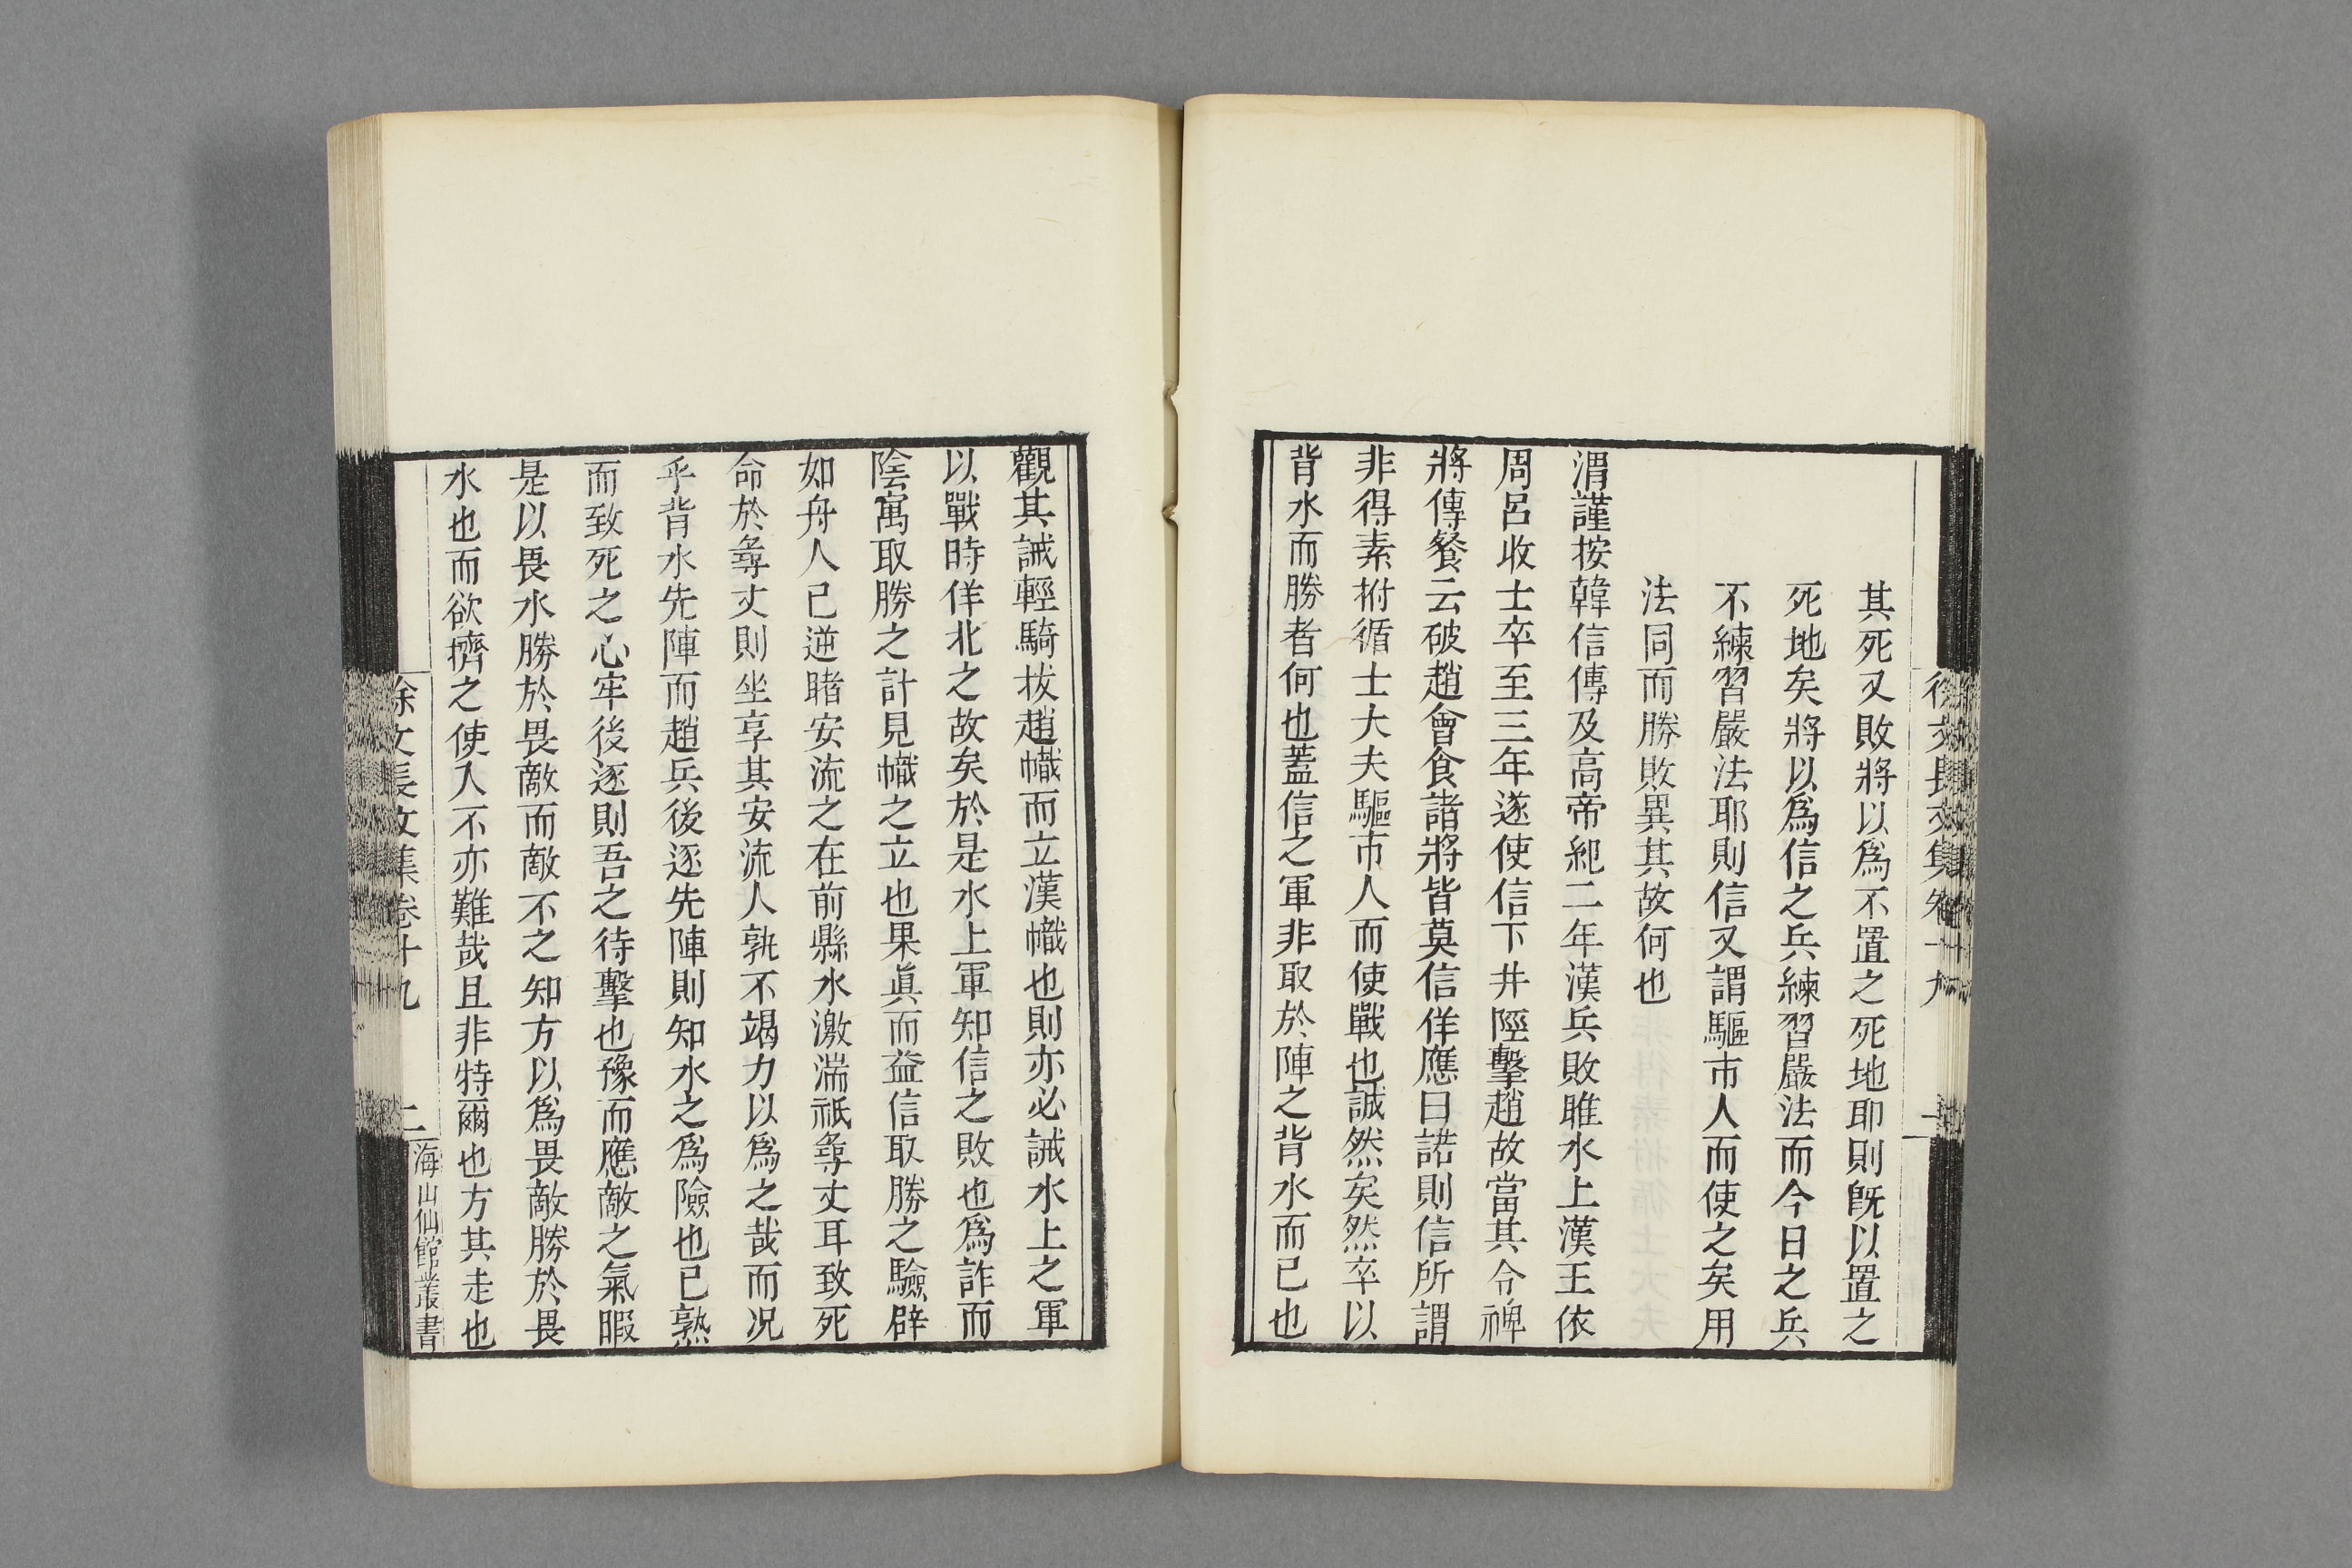 徐文長文集卷十九
一
其死又敗將以爲不置之死地耶則旣以置之
死地矣將以爲信之兵練習嚴法而今日之兵
不練習嚴法耶則信又謂驅市人而使之矣用
法同而勝敗異其故何也
渭謹按韓信傳及高帝紀二年漢兵敗睢水上漢王依
周呂收士卒至三年遂使信下井陘擊趙故當其令裨
將傳餐云破趙會食諸將皆莫信佯應曰諾則信所謂
非得素拊循士大夫驅市人而使戰也誠然矣然卒以
背水而勝者何也蓋信之軍非取於陣之背水而已也
觀其誡輕騎拔趙幟而立漢幟也則亦必誡水上之軍
以戰時佯北之故矣於是水上軍知信之敗也爲詐而
陰寓取勝之計見幟之立也果眞而益信取勝之驗辟
如舟人已逆睹安流之在前縣水激湍祇尋丈耳致死
命於尋丈則坐享其安流人孰不竭力以爲之哉而况
乎背水先陣而趙兵後逐先陣則知水之爲險也已熟
而致死之心牢後逐則吾之待擊也豫而應敵之氣暇
是以畏水勝於畏敵而敵不之知方以爲畏敵勝於畏
水也而欲擠之使入不亦難哉且非特爾也方其走也
徐文長文集卷十九
二
海山仙館叢書